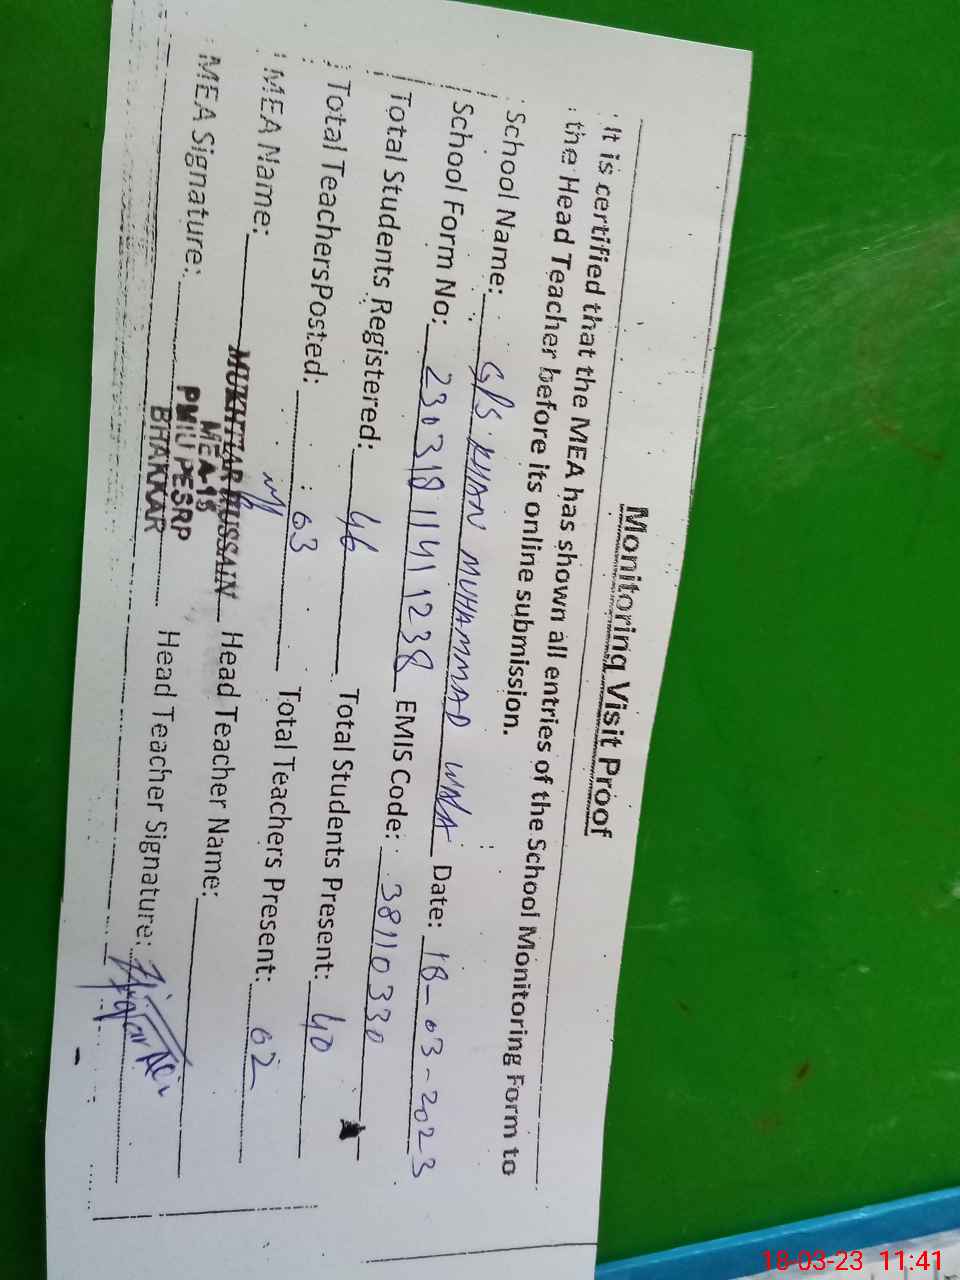 Monitoring Visit Proof
It is certified that the MEA has shown all entries of the School Monitoring Form to
the Head Teacher before its online submission.
School Name: GPS KHAN MUHAMMAD WALA Date: 18-03-2023
School Form No: 230318 1141 1238 EMIS Code: 38110330
Total Students Registered: 46 Total Students Present: 40
Total TeachersPosted: 03 Total Teachers Present: 02
MEA Name: MUKHTIAR HUSSAIN Head Teacher Name:
MEA-18
MEA Signature: PMIU PESRP Head Teacher Signature:
BHAKKAR
18-03-23 11:41